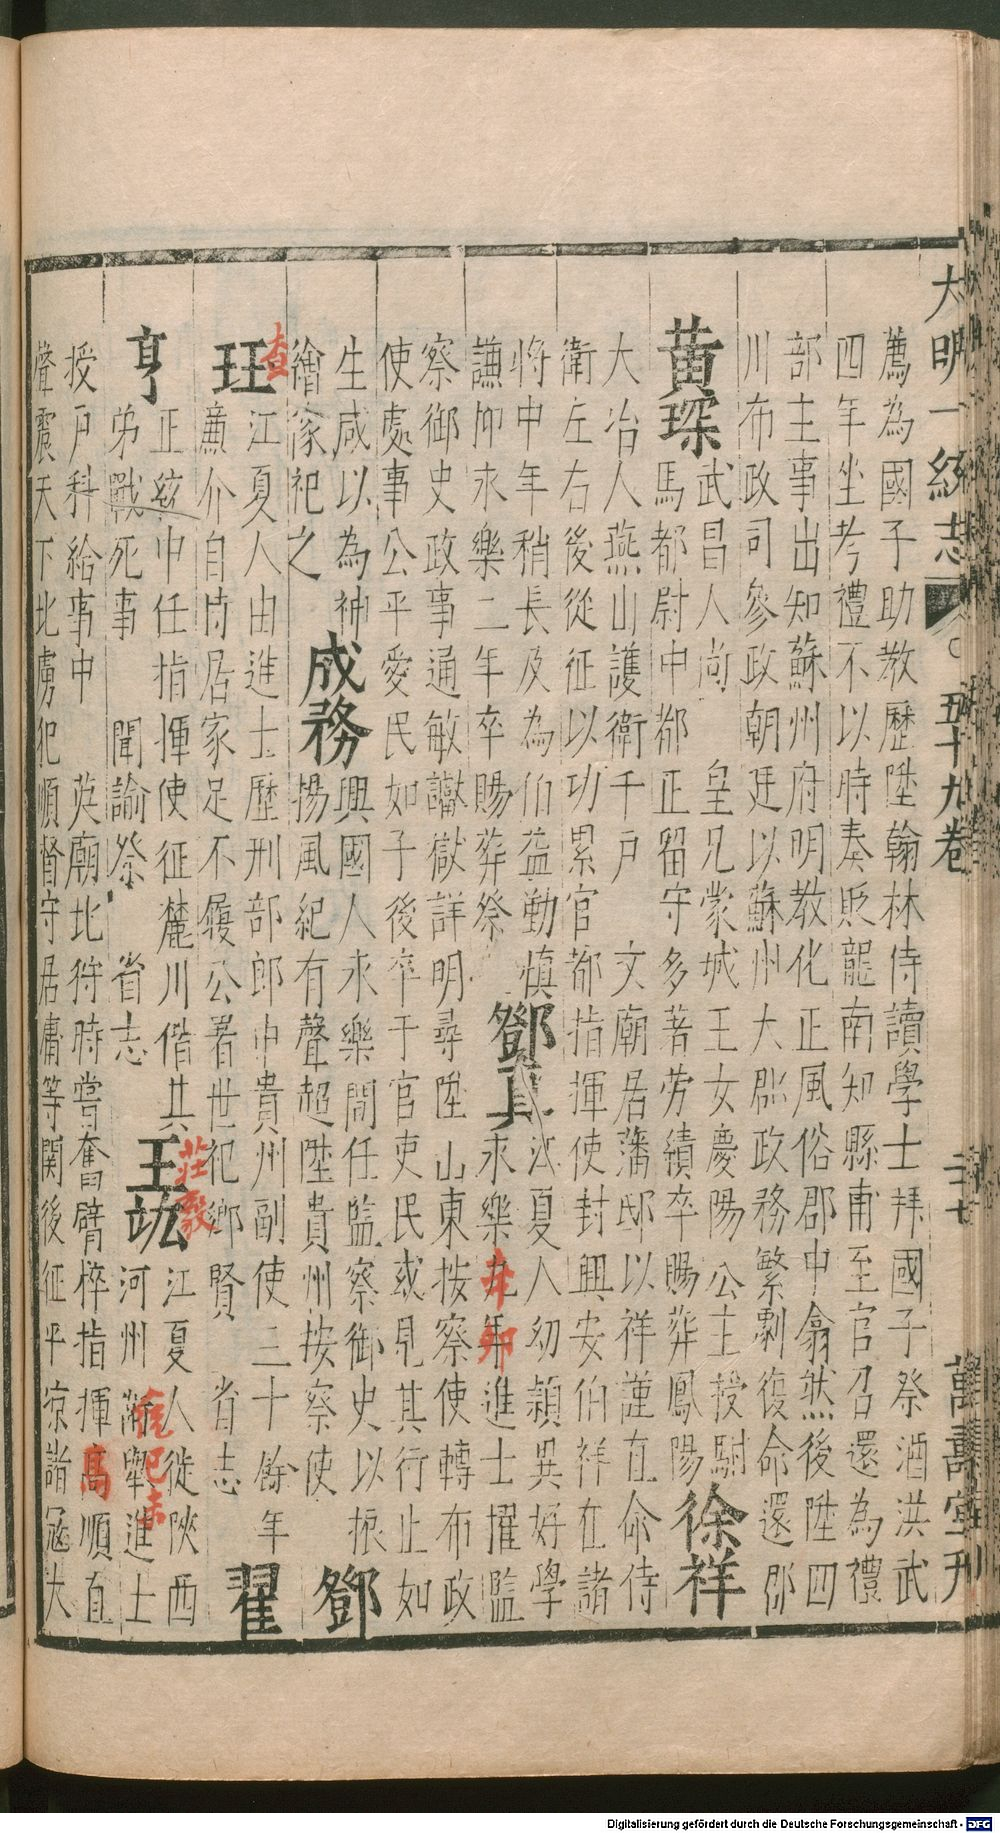 大明一統志 五十九卷 二十七 萬壽堂刋
薦為國子助教歷陞翰林侍讀學士拜國子祭酒洪武
四年坐考禮不以時奏貶龍南知縣甫至官召還為禮
部主事出知蘇州府明教化正風俗郡中翕然後陞四
川布政司參政朝廷以蘇州大郡政務繁劇復命還郡
黃琛 武昌人尚 皇兄蒙城王女慶陽 公主授駙
馬都尉中都正留守多著劳績卒賜葬鳳陽 徐祥
大冶人燕山護衛千戶 文廟居藩邸以祥謹直命侍
衛左右後從征以功累官都指揮使封興安伯祥在諸
将中年稍長及為伯益勤慎 鄧真 江夏人初穎異好學
謙抑永樂二年卒賜葬祭 永樂九年進士擢監
察御史政事通敏讞獄詳明尋陞山東按察使轉布政
使處事公平愛民如子後卒于官吏民或見其行止如
生咸以為神 成務 興國人永樂間任監察御史以振 鄧
繪像祀之 揚風紀有聲超陞貴州按察使
珏 江夏人由進士歷刑部郎中貴州副使三十餘年 翟
亷介自恃居家足不履公署世祀鄉賢 省志
亨 正統中任指揮使征麓川偕其 王竑 江夏人徙陜西
弟戰死事 聞諭祭 省志 河州 進士
授戶科給事中 英廟北狩時嘗奮臂捽指揮 順直
聲震天下北虜犯順督守居庸等関後征平凉諸冦大
查
莊毅
辛卯
己未
高
Digitalisierung gefördert durch die Deutsche Forschungsgemeinschaft - DFG